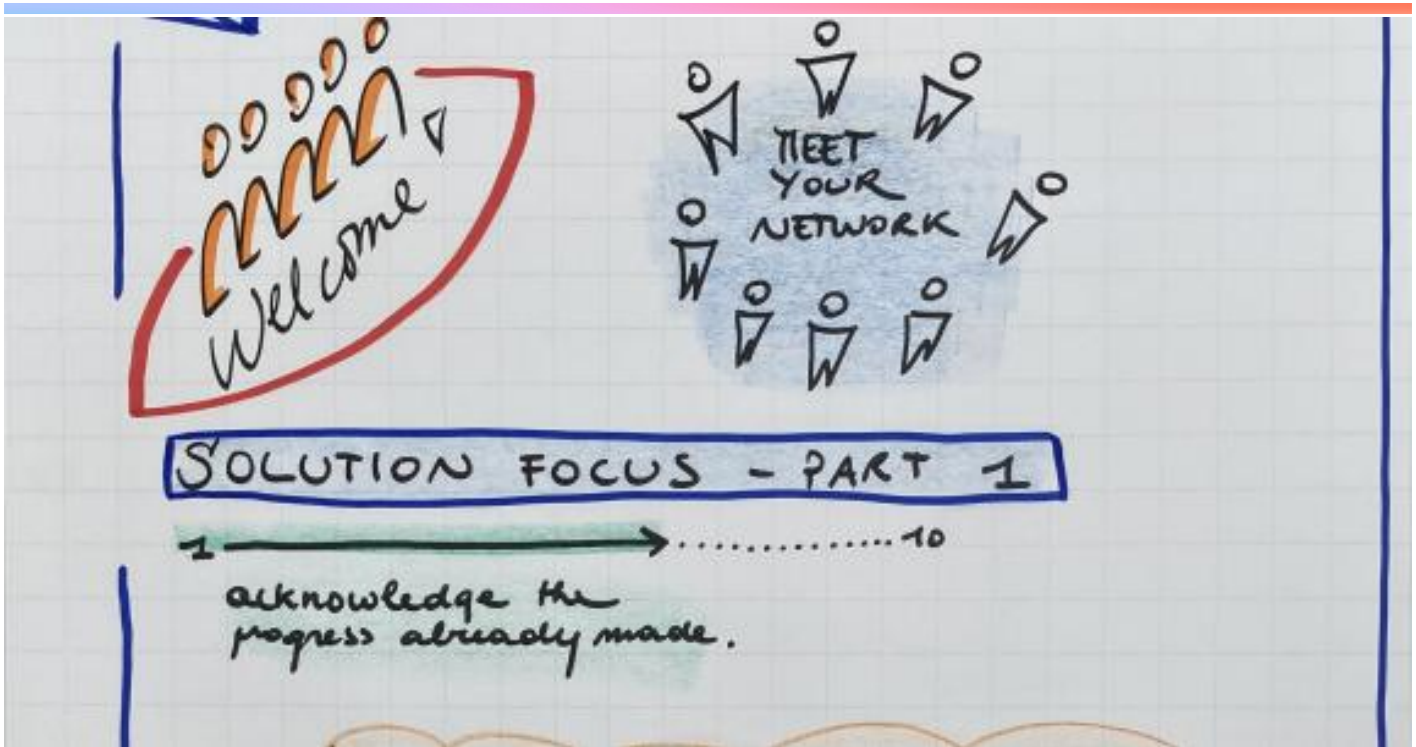 Welcome
MEET
YOUR
NETWORK
SOLUTION FOCUS - PART 1
1 ............... 10
acknowledge the
progress already made.